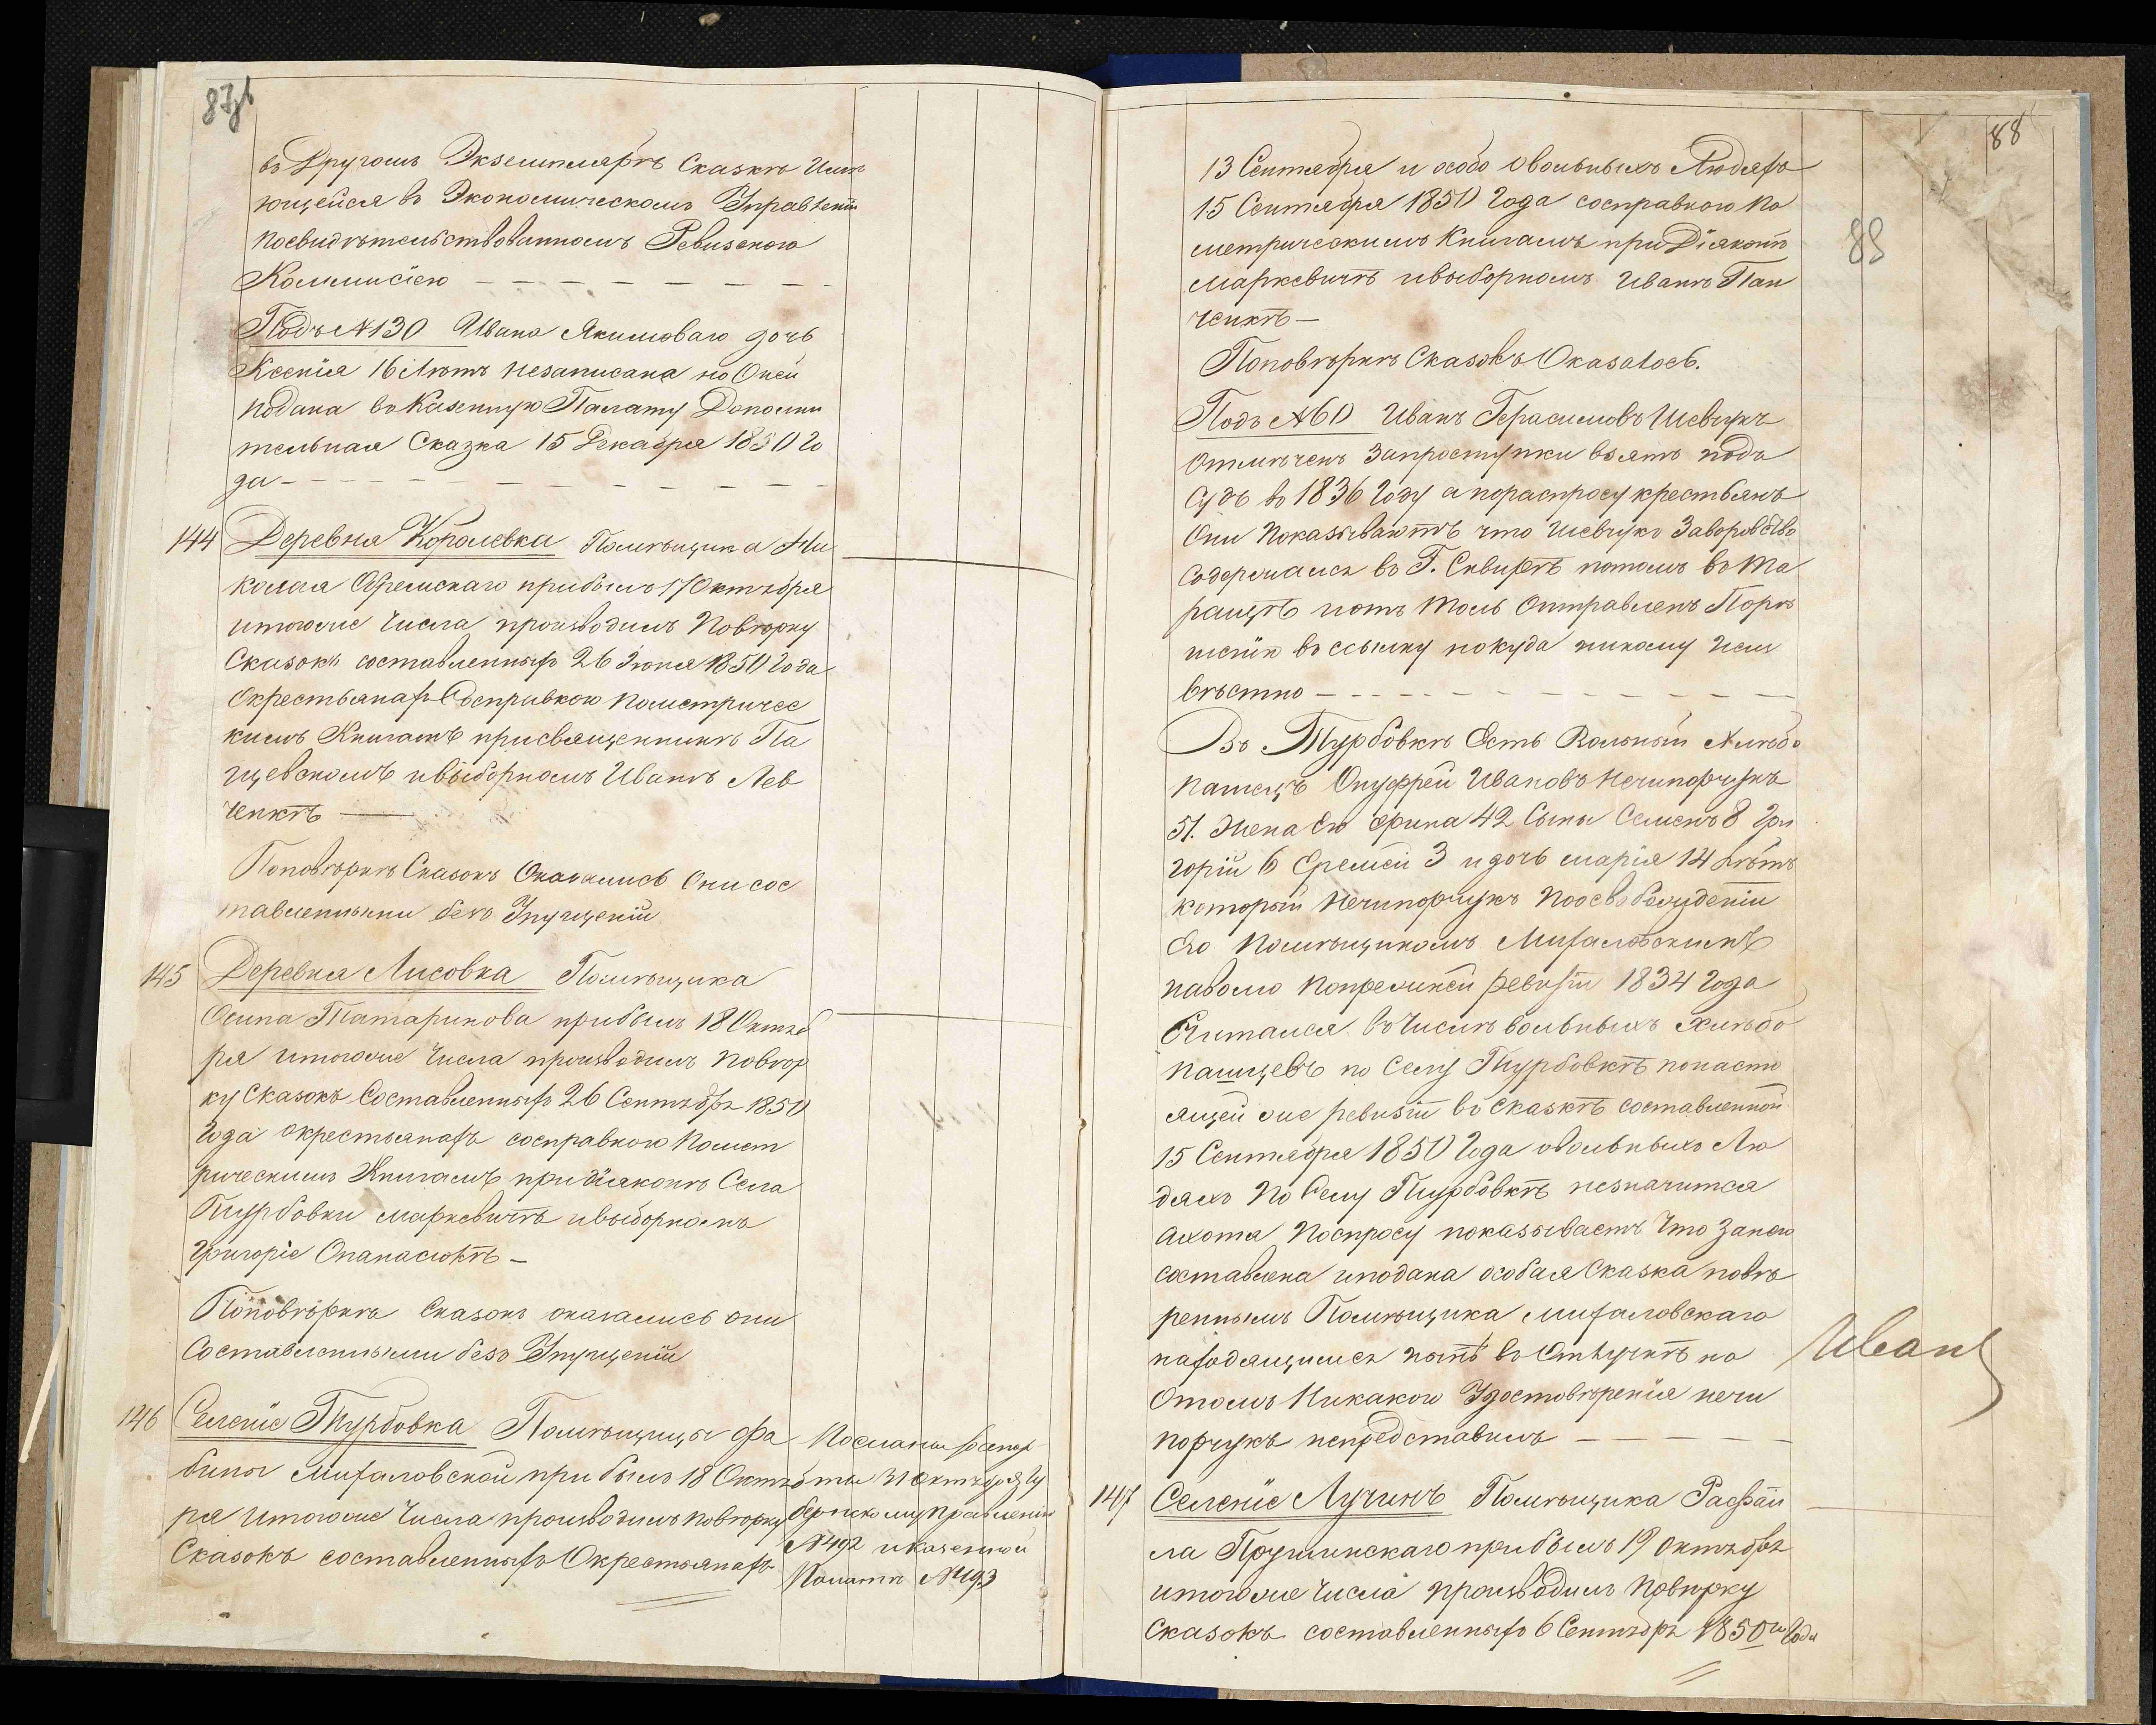 87об
въ другомъ Экземплярѣ сказкѣ имѣ
ющейся въ Экономическомъ Управленіи
посвидѣтельствованномъ Ревизскою
Коммисіею
Подъ №130 Ивана Якимоваго дочь
Ксенія 16 лѣтъ незаписана но Оней
подана въ Казенную Палату Дополни
тельная Сказка 15 Декабря 1850 го
да
144 Деревня Королевка Помѣщика Ни
колая прибылъ 17 Октября
итогоже числа производилъ Повѣрку
Сказокъ составленныхъ 26 Іюня 1850 Года
Окрестьянахъ Соспривкою пометричес
кимъ Книгамъ присвященникѣ Па
щевскомъ ивыборномъ Иванѣ Лев
ченкѣ
Поповѣркѣ Сказокъ Оказались Они сос
тавленными безъ Упущеній
145 Деревня Лисовка Помѣщика
Осипа Татаринова прибылъ 18 Октяб
ря итогоже Числа производилъ повѣр
ку Сказокъ Составленныхъ 26 Сентября 1850
Года окрестьянахъ сосправкою помет
рическимъ Книгамъ придіяконѣ Села
Турбовки маркевичѣ ивыборномъ
григоріе Опанасюкѣ
Поповѣркѣ Сказокъ оказались они
Составленными безъ Упущеній
146 Селеніе Турбовка Помѣщицы Фа
бины Михаловской прибылъ 18 Октяб
ря итогоже Числа производилъ повѣрку
Сказокъ составленныхъ Окрестьянахъ
Посланы рапор
ты 31 октября Гу
бернскому правленію
№492 иказенной
Палатѣ №493
88
89
13 Сентября и особо овольныхъ Людяхъ
15 Сентября 1850 Года сосправкою по
метрическимъ Книгамъ при Діяконѣ
маркевичѣ ивыборномъ Иванѣ Пан
ченкѣ
Поповѣркѣ Сказокъ Оказалось.
Подъ №60 Иванъ Герасимовъ Шевчукъ
отмѣченъ Запроступки взятъ подъ
Судъ въ 1836 Году а пораспросу крестьянъ
Они показываютъ что Шевчукъ Заворовство
Содержался въ Г. Сквирѣ потомъ въ Та
ращѣ иотъ толь Отправленъ
въ ссылку покуда никому неиз
вѣстно
Въ Турбовкѣ Есть Вольный Хлѣбо
пашецъ Онуфрей Ивановъ Нечипорчукъ
51. Жена Его Ирина 42 Сыны Семенъ 8 Гри
горій 6 Еремей 3 и дочь марія 14 лѣтъ
который Нечипорчукъ поосвобожденіи
Его помѣщикомъ Михаловскимъ
наволю попрежней ревизіи 1834 года
Считался въ Числѣ вольныхъ хлѣбо
пашцевъ по Селу Турбовкѣ понасто
ящей же ревизіи въ сказкѣ составленной
15 Сентября 1850 Года овольныхъ Лю
дяхъ по Селу Турбовкѣ незначится
ахотя поспросу показываетъ Что Занего
составлена иподана особая Сказка повѣ
реннымъ Помѣщика михаловскаго
находящимся нынѣ въ Отлучкѣ но
Отомъ Никакого Удостовѣренія нечи
порчукъ непредставилъ
Иванъ
147 Селеніе Лучинъ Помѣщика Рафаи
ла Прушинскаго прибылъ 19 октября
итогоже Числа производилъ повѣрку
Сказокъ составленныхъ 6 Сентября 1850го Года